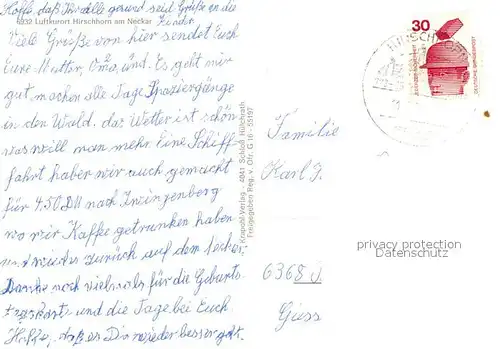 Hoffe, daß Ihr alle gesund seid Grüße an die
Kinder
6932 Luftkurort Hirschhorn am Neckar
Viele Grüße von hier sendet Euch
Eure Mutter, Oma, und. Es geht mir
gut machen alle Tage Spaziergänge
in den Wald, das Wetter ist schön
was will man mehr. Eine Schiff
fahrt haben wir auch gemacht
für 4.50 DM nach Zwingenberg
wo wir Kaffe getrunken haben
und wieder zurück auf dem
Danke noch vielmals für die Geburts
und die Tage bei Euch
Hoffe, daß es Dir wieder besser geht.
Krapohl-Verlag · 4041 Schloß Hülchrath
Freigegeben Reg. v. Ofr. G 16
30
DEUTSCHE BUNDESPOST
HIRSCHHORN
Familie
Karl F.
6368
privacy protection
Datenschutz